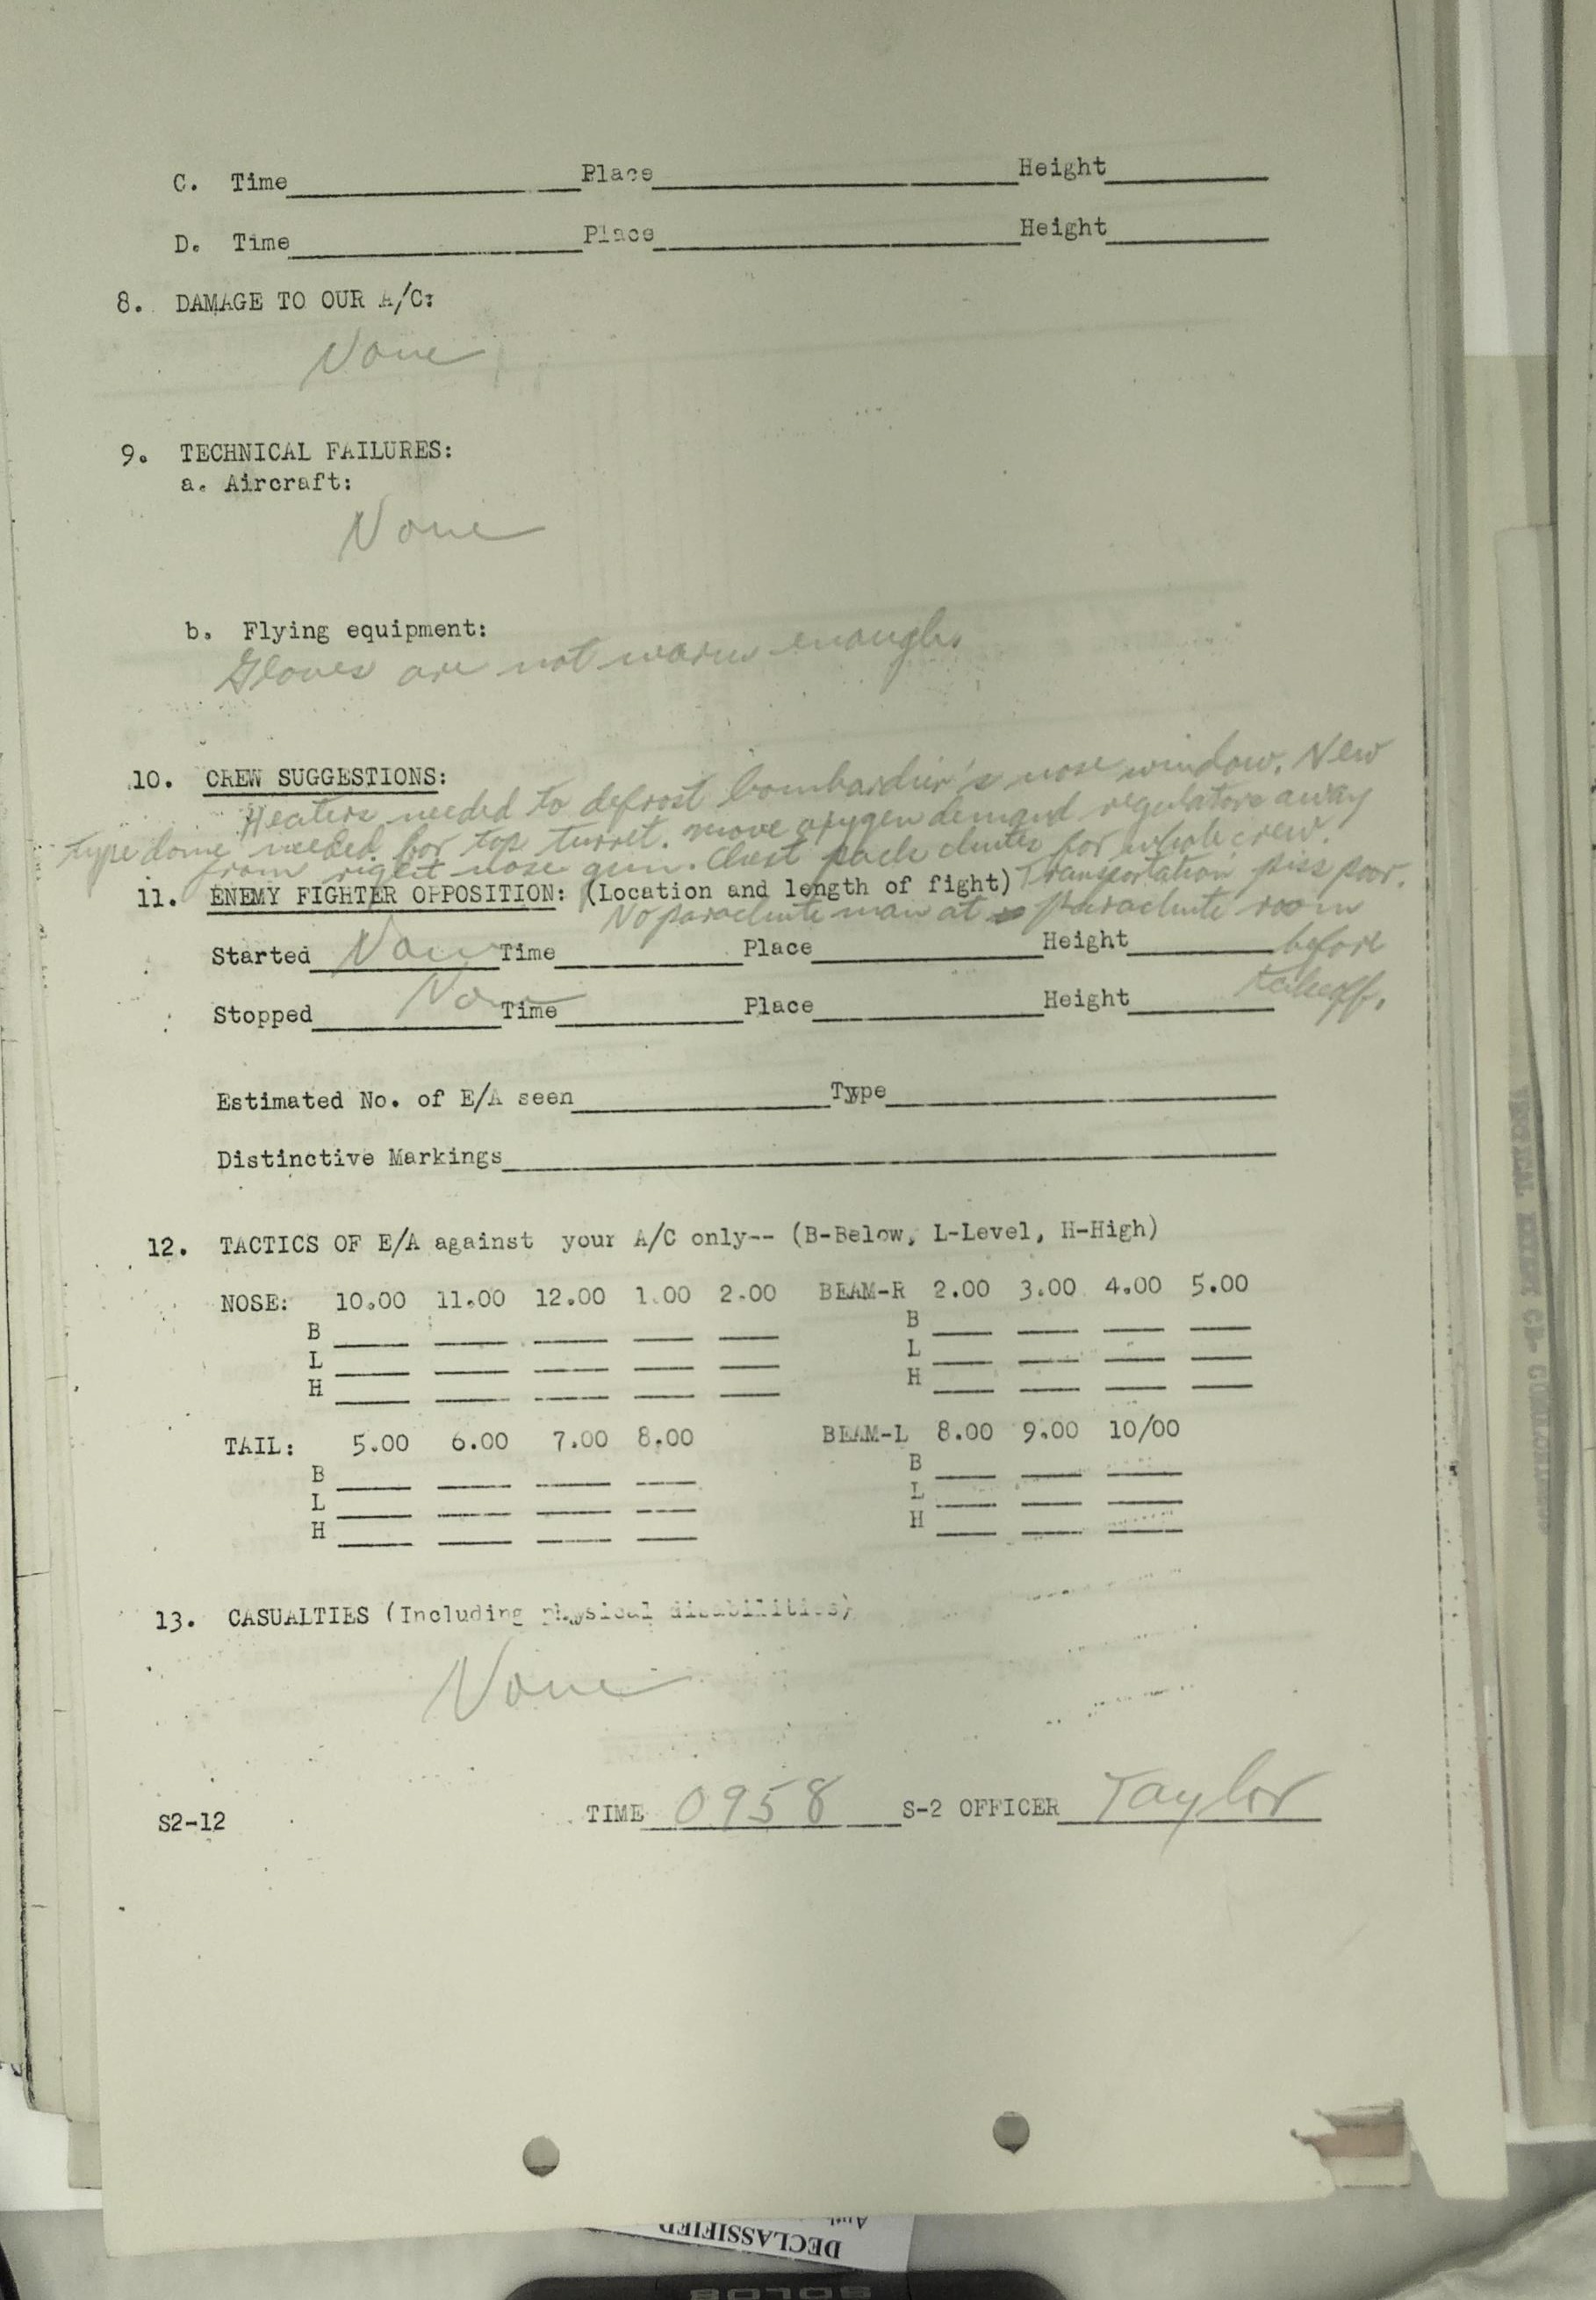 C. Time____________Place____________Height________
D. Time____________Place____________Height________
8. DAMAGE TO OUR A/C:
None
9. TECHNICAL FAILURES:
a. Aircraft:
None
b. Flying equipment:
Gloves are not warm enough.
10. CREW SUGGESTIONS:
Heaters needed to defrost bombardier's nose window. New
type dome needed for top turret. move oxygen demand regulators away
from right nose gun. Chest pack chutes for whole crew.
Transportation piss poor.
No parachute man at parachute room
before
takeoff.
11. ENEMY FIGHTER OPPOSITION: (Location and length of fight)
Started None Time________Place________Height________
Stopped None Time________Place________Height________
Estimated No. of E/A seen____________Type____________
Distinctive Markings____________
12. TACTICS OF E/A against your A/C only-- (B-Below, L-Level, H-High)
NOSE: 10.00 11.00 12.00 1.00 2.00 BEAM-R 2.00 3.00 4.00 5.00
B ____ ____ ____ ____ ____ B ____ ____ ____ ____
L ____ ____ ____ ____ ____ L ____ ____ ____ ____
H ____ ____ ____ ____ ____ H ____ ____ ____ ____
TAIL: 5.00 6.00 7.00 8.00 BEAM-L 8.00 9.00 10/00
B ____ ____ ____ ____ B ____ ____ ____
L ____ ____ ____ ____ L ____ ____ ____
H ____ ____ ____ ____ H ____ ____ ____
13. CASUALTIES (Including physical disabilities)
None
S2-12 TIME 0958 S-2 OFFICER Taylor
DECLASSIFIED